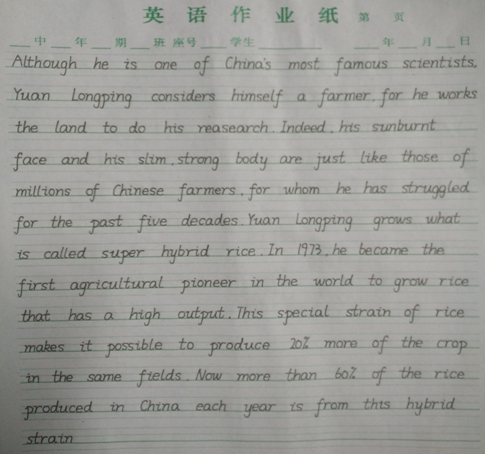 英语作业纸 第 页
中 年 期 班 座号 学生 年 月 日
Although he is one of China's most famous scientists,
Yuan Longping considers himself a farmer, for he works
the land to do his reasearch. Indeed, his sunburnt
face and his slim, strong body are just like those of
millions of Chinese farmers, for whom he has struggled
for the past five decades. Yuan Longping grows what
is called super hybrid rice. In 1973, he became the
first agricultural pioneer in the world to grow rice
that has a high output. This special strain of rice
makes it possible to produce 20% more of the crop
in the same fields. Now more than 60% of the rice
produced in China each year is from this hybrid
strain